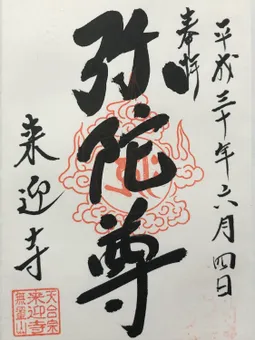 奉拝
平成三十年六月四日
弥陀尊
来迎寺
天台宗
来迎寺
無量山